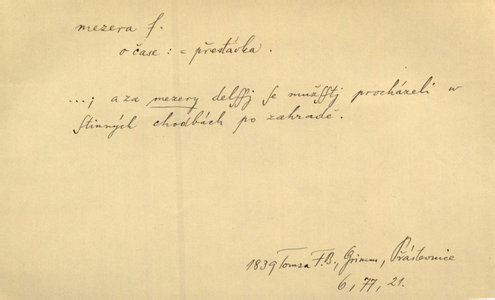 mezera f.
o čase : = přestávka .
...; a za mezery delssj se mužsstj procházeli w
stinných chodbách po zahradě .
1839 Tomsa F.B., Grimm, Přástevnice
6, 77, 21.